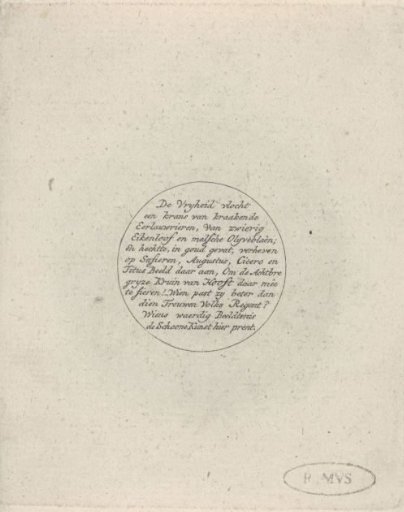 De Vryheid vlocht
een krans van kraakende
Eerlauwrieren, Van zwierig
Eikenloof en malsche Olyveblaên;
En hechtte, in goud gevat, verheven
op Safieren, Augustus, Cicero en
Titus Beeld daar aan, Om de Achtbre
gryze Kruin van Hooft daar mée
te sieren! Wien past zy beter dan
dien Trouwen Volks Regent?
Wiens waerdig Beeldtenis
de Schoone Kunst hier prent.
R. MVS